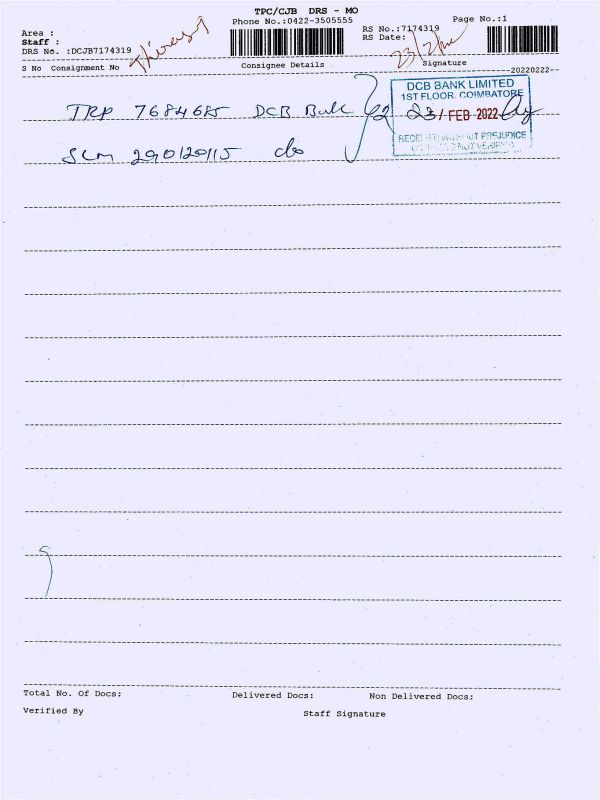 TPC/CJB DRS - MO
Phone No.:0422-3505555
Page No.:1
Area :
Staff :
DRS No. :DCJB7174319
RS No.:7174319
RS Date:
23/2/
S No Consignment No
Consignee Details
Signature
20220222
TRP 7684685 DCB Bank
DCB BANK LIMITED
1ST FLOOR, COIMBATORE
23/ FEB 2022
RECEIVED WITHOUT PREJUDICE
SLM 290120115 do
Total No. Of Docs:
Delivered Docs:
Non Delivered Docs:
Verified By
Staff Signature